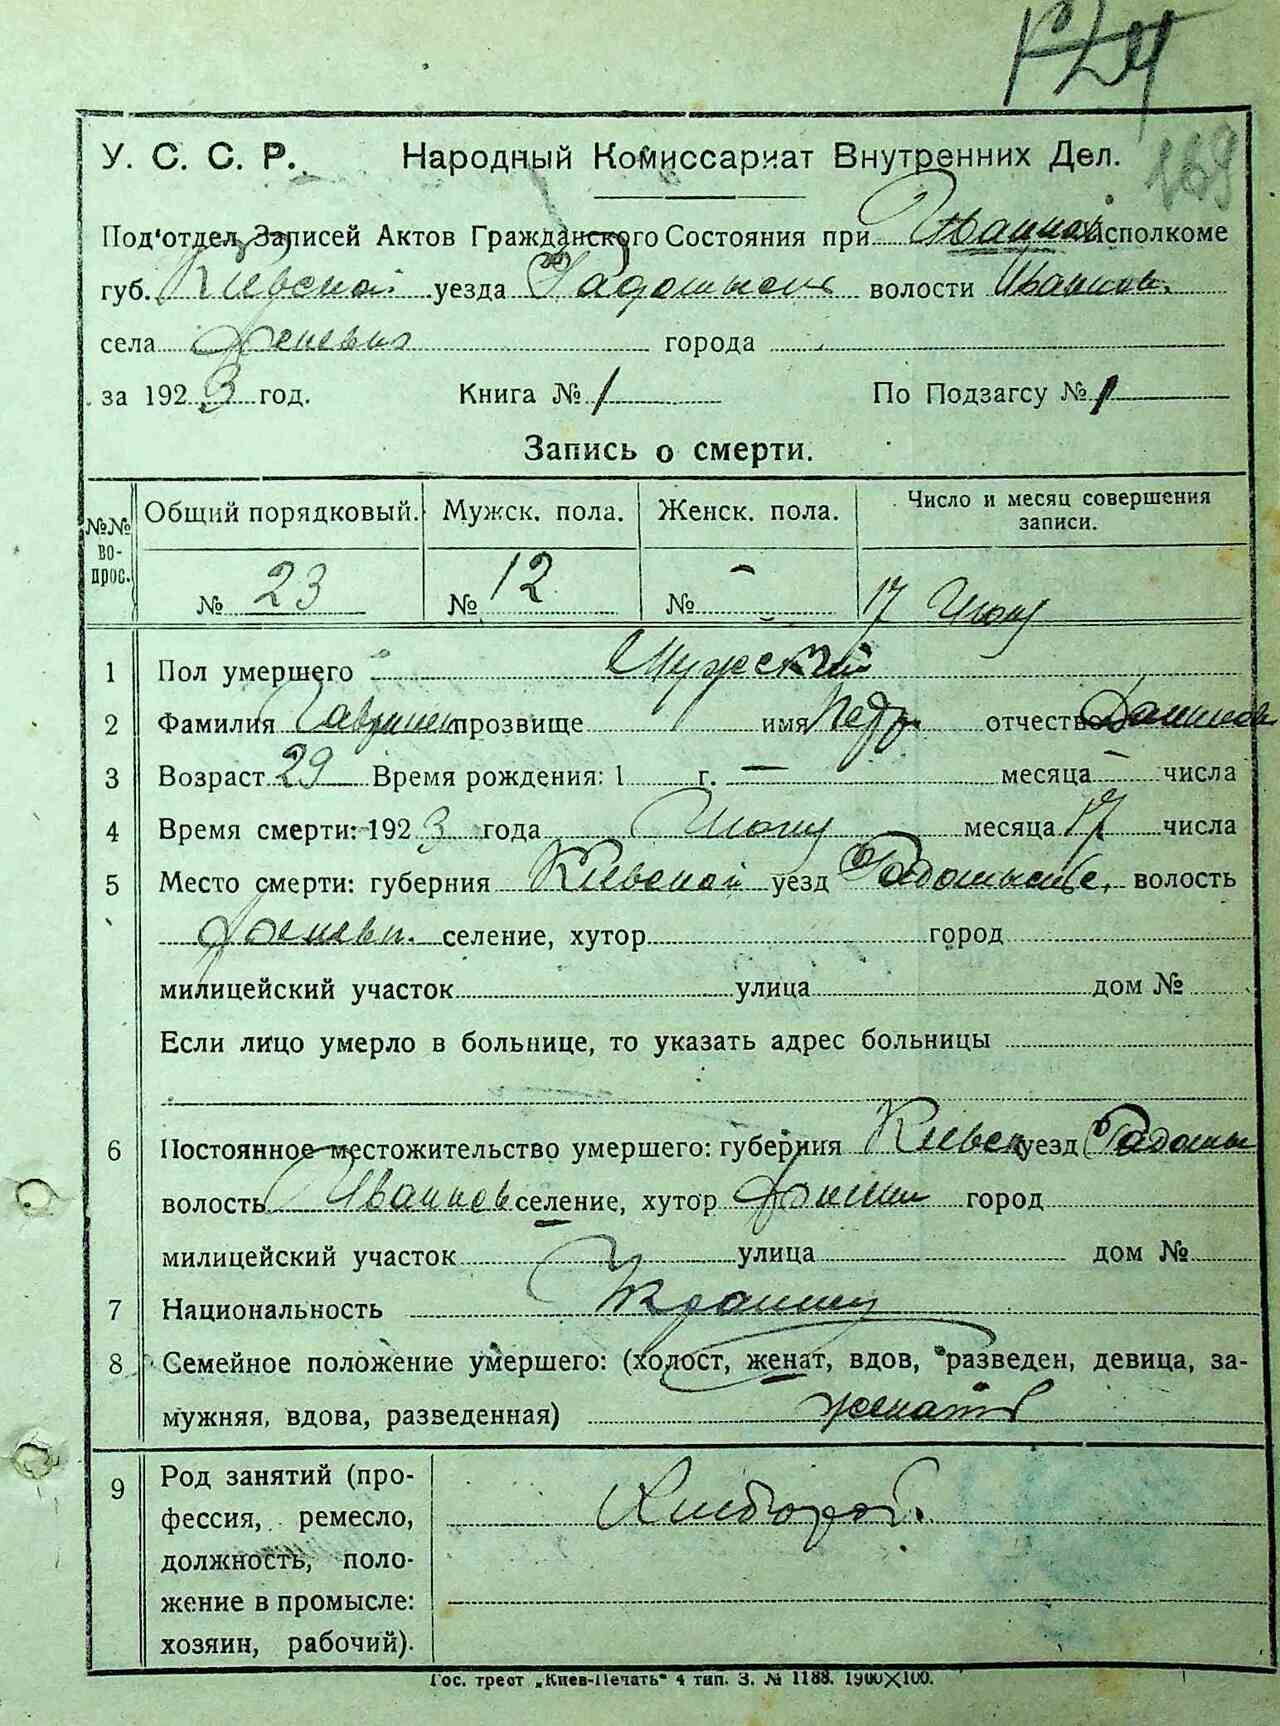 У. С. С. Р. Народный Комиссариат Внутренних Дел.
169
Под'отдел Записей Актов Гражданского Состояния при Иванков Исполкоме
губ. Киевской уезда Радомысль волости Иванков.
села города
за 1923 год. Книга № 1 По Подзагсу № 1
Запись о смерти.
№№ вопрос. Общий порядковый. Мужск. пола. Женск. пола. Число и месяц совершения записи.
№ 23 № 12 № - 17 Июня
1 Пол умершего Мужской
2 Фамилия прозвище имя Петр отчество
3 Возраст 29 Время рождения: 1 г. — месяца — числа
4 Время смерти: 1923 года Июня месяца 17 числа
5 Место смерти: губерния Киевской уезд волость
селение, хутор город
милицейский участок улица дом №
Если лицо умерло в больнице, то указать адрес больницы
6 Постоянное местожительство умершего: губерния Киевск уезд Радомы
волость Иванков селение, хутор город
милицейский участок улица дом №
7 Национальность
8 Семейное положение умершего: (холост, женат, вдов, разведен, девица, за-
мужняя, вдова, разведенная) женат
9 Род занятий (про- Хлебороб.
фессия, ремесло,
должность, поло-
жение в промысле:
хозяин, рабочий).
Гос. трест „Киев-Печать“ 4 тип. З. № 1188. 1900×100.